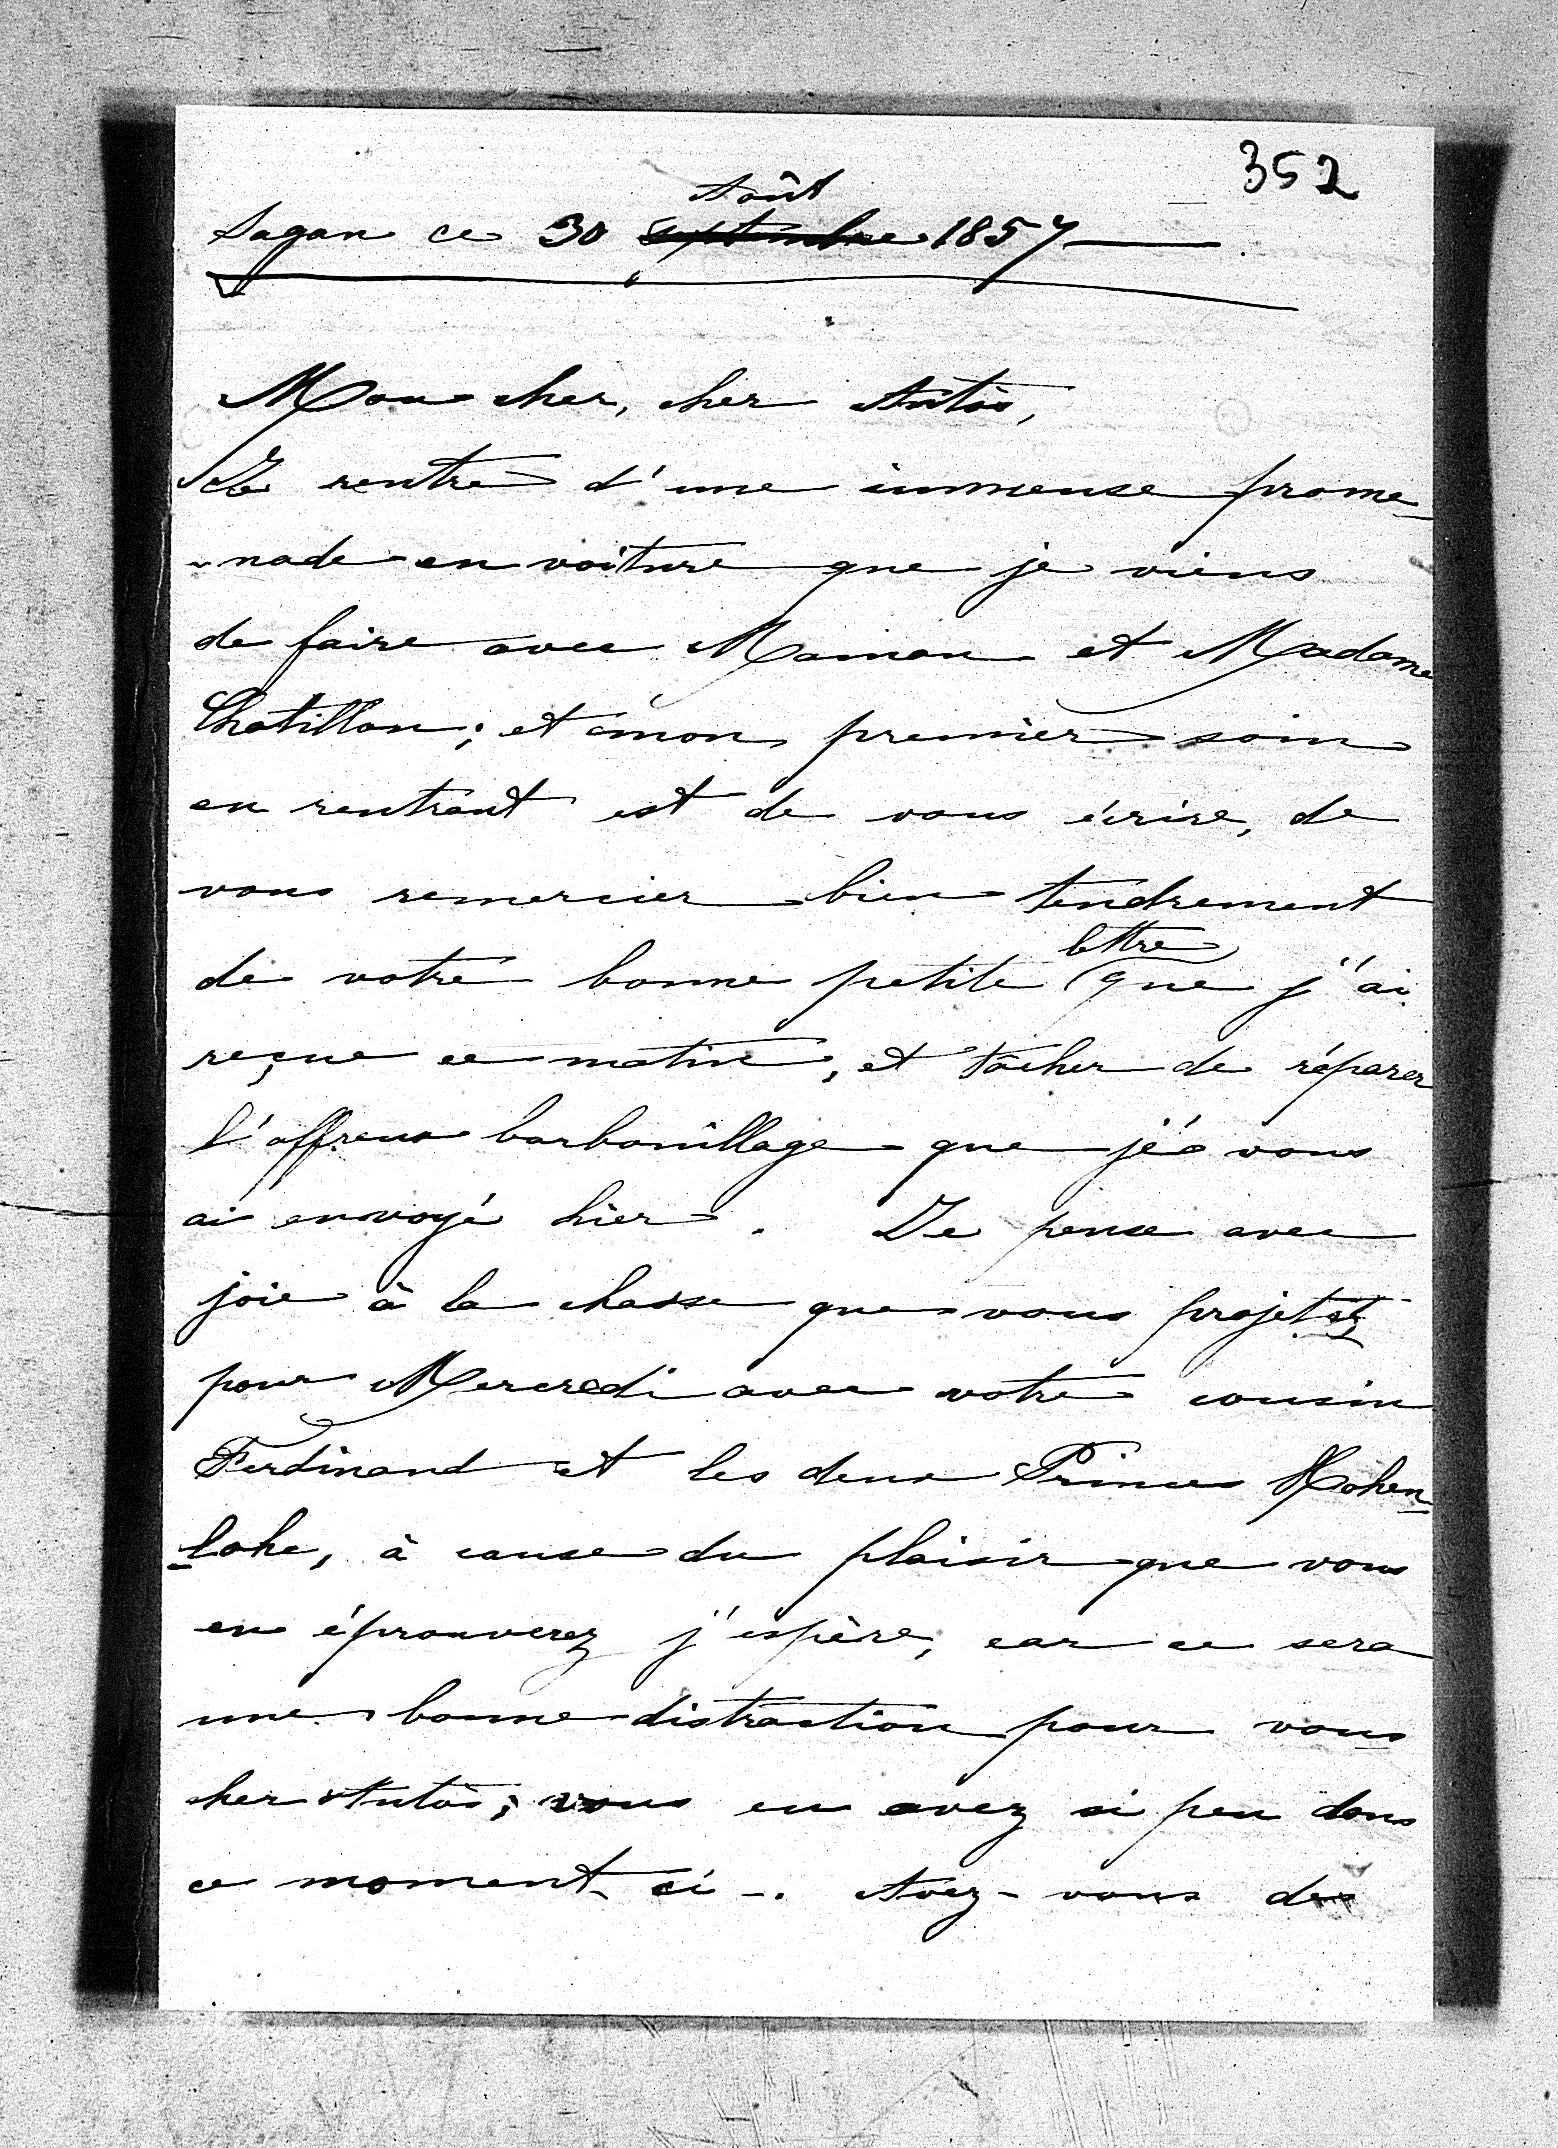 352
Août
Sagan ce 30 septembre 1857
Mon cher, cher Antòs,
Je rentre d'une immense prome-
-nade en voiture que je viens
de faire avec Maman et Madame
Chatillon; et mon premier soin
en rentrant est de vous écrire, de
vous remercier bien tendrement
lettre
de votre bonne petite que j'ai
reçue ce matin, et tâcher de réparer
l'affreux barbouillage que je vous
ai envoyé hier. Je pense avec
joie à la chasse que vous projetez
pour Mercredi avec votre cousin
Ferdinand et les deux Princes Hohen-
-lohe, à cause du plaisir que vous
en éprouverez j'espère, car ce sera
une bonne distraction pour vous
cher Antòs; vous en avez si peu dans
ce moment-ci -. Avez-vous des